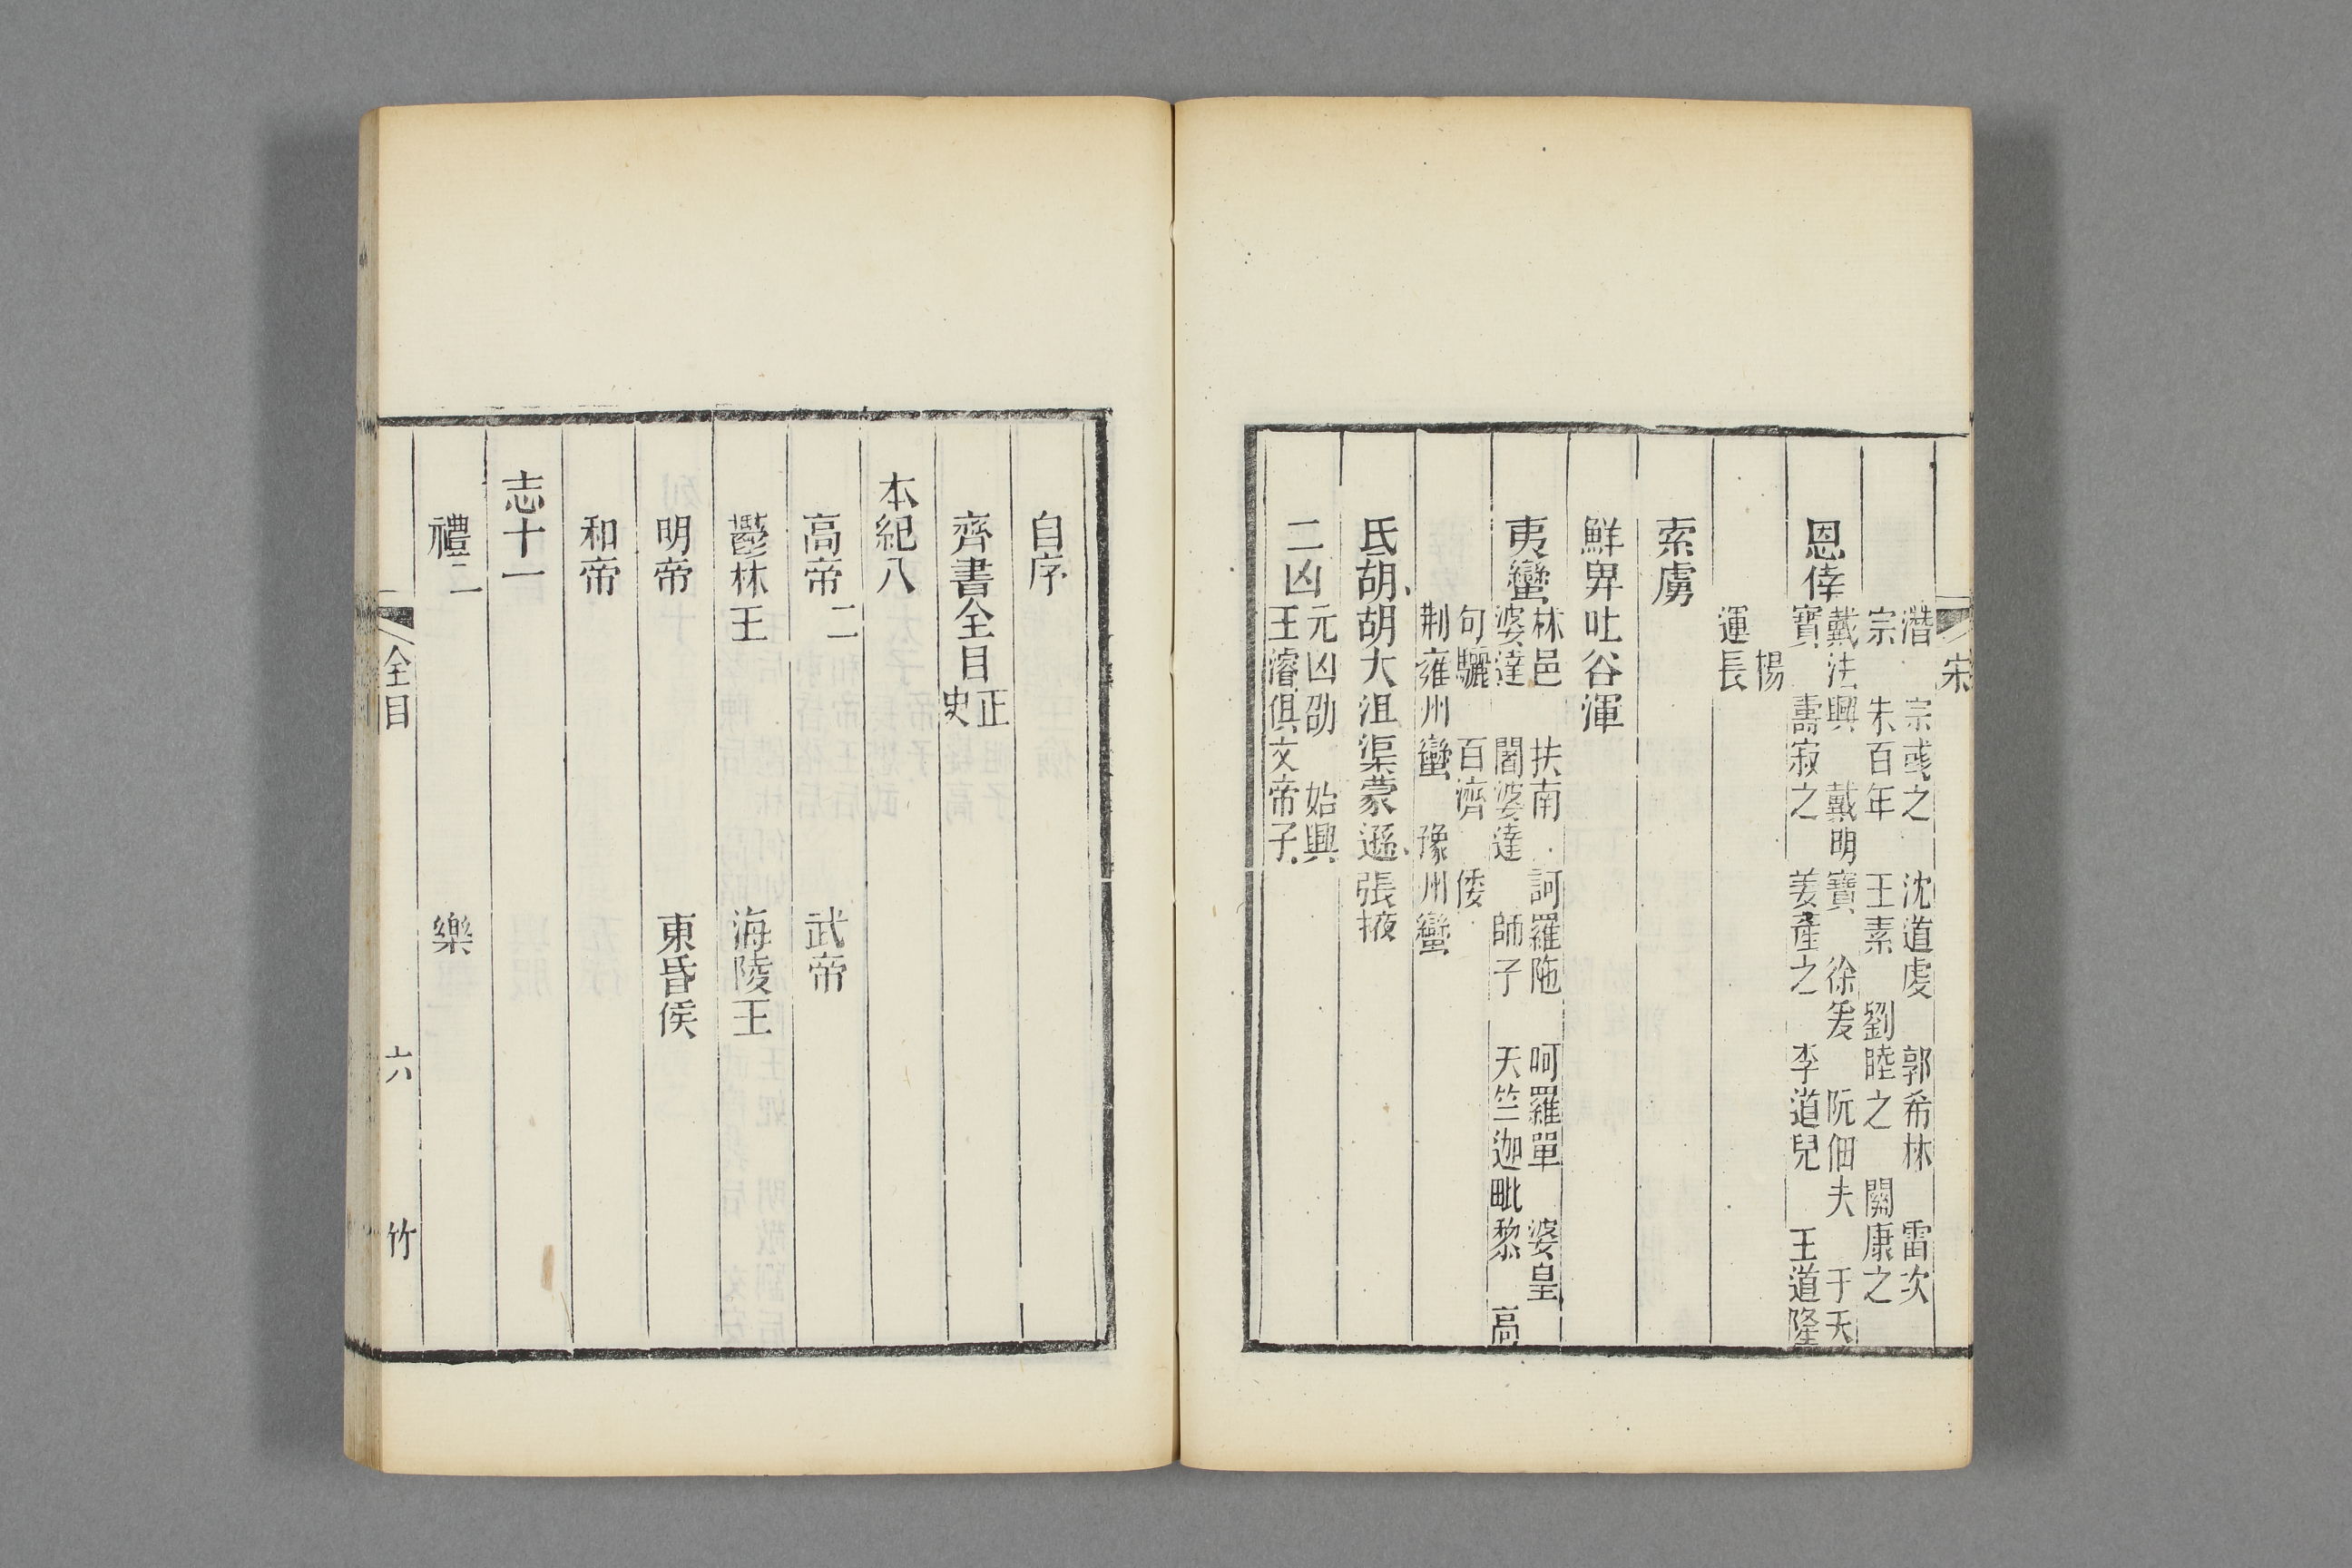 宋
潛　宗彧之　沈道虔　郭希林　雷次
宗　朱百年　王素　劉睦之　關康之
恩倖
戴法興　戴明寶　徐爰　阮佃夫　于天
寳　壽寂之　姜產之　李道兒　王道隆
楊
運長
索虜
鮮卑吐谷渾
夷蠻
林邑　扶南　訶羅陁　呵羅單　婆皇
婆達　闍婆達　師子　天竺迦毗黎　高
句驪　百濟　倭
荆雍州蠻　豫州蠻
氐胡胡大沮渠蒙遜張掖
二凶
元凶劭　始興
王濬俱文帝子
自序
齊書全目
正
史
本紀八
高帝二　武帝
鬱林王　海陵王
明帝　東昏侯
和帝
志十一
禮二　樂
全目　六　竹